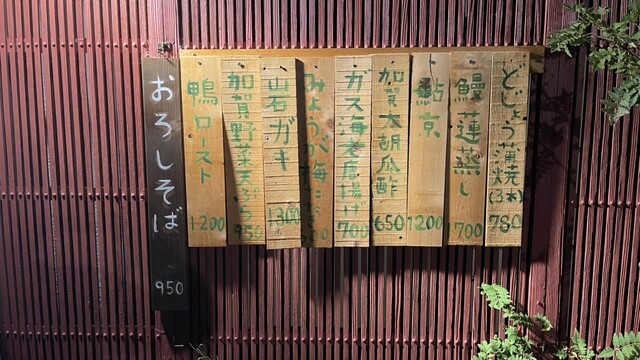 どじょう蒲焼(3本) 780
鰻蓮蒸し 1700
鮎 1200
加賀太胡瓜酢 650
ガス海老唐揚げ 700
みょうが梅
岩ガキ 1300
加賀野菜天ぷら 950
鴨ロースト 1200
おろしそば 950